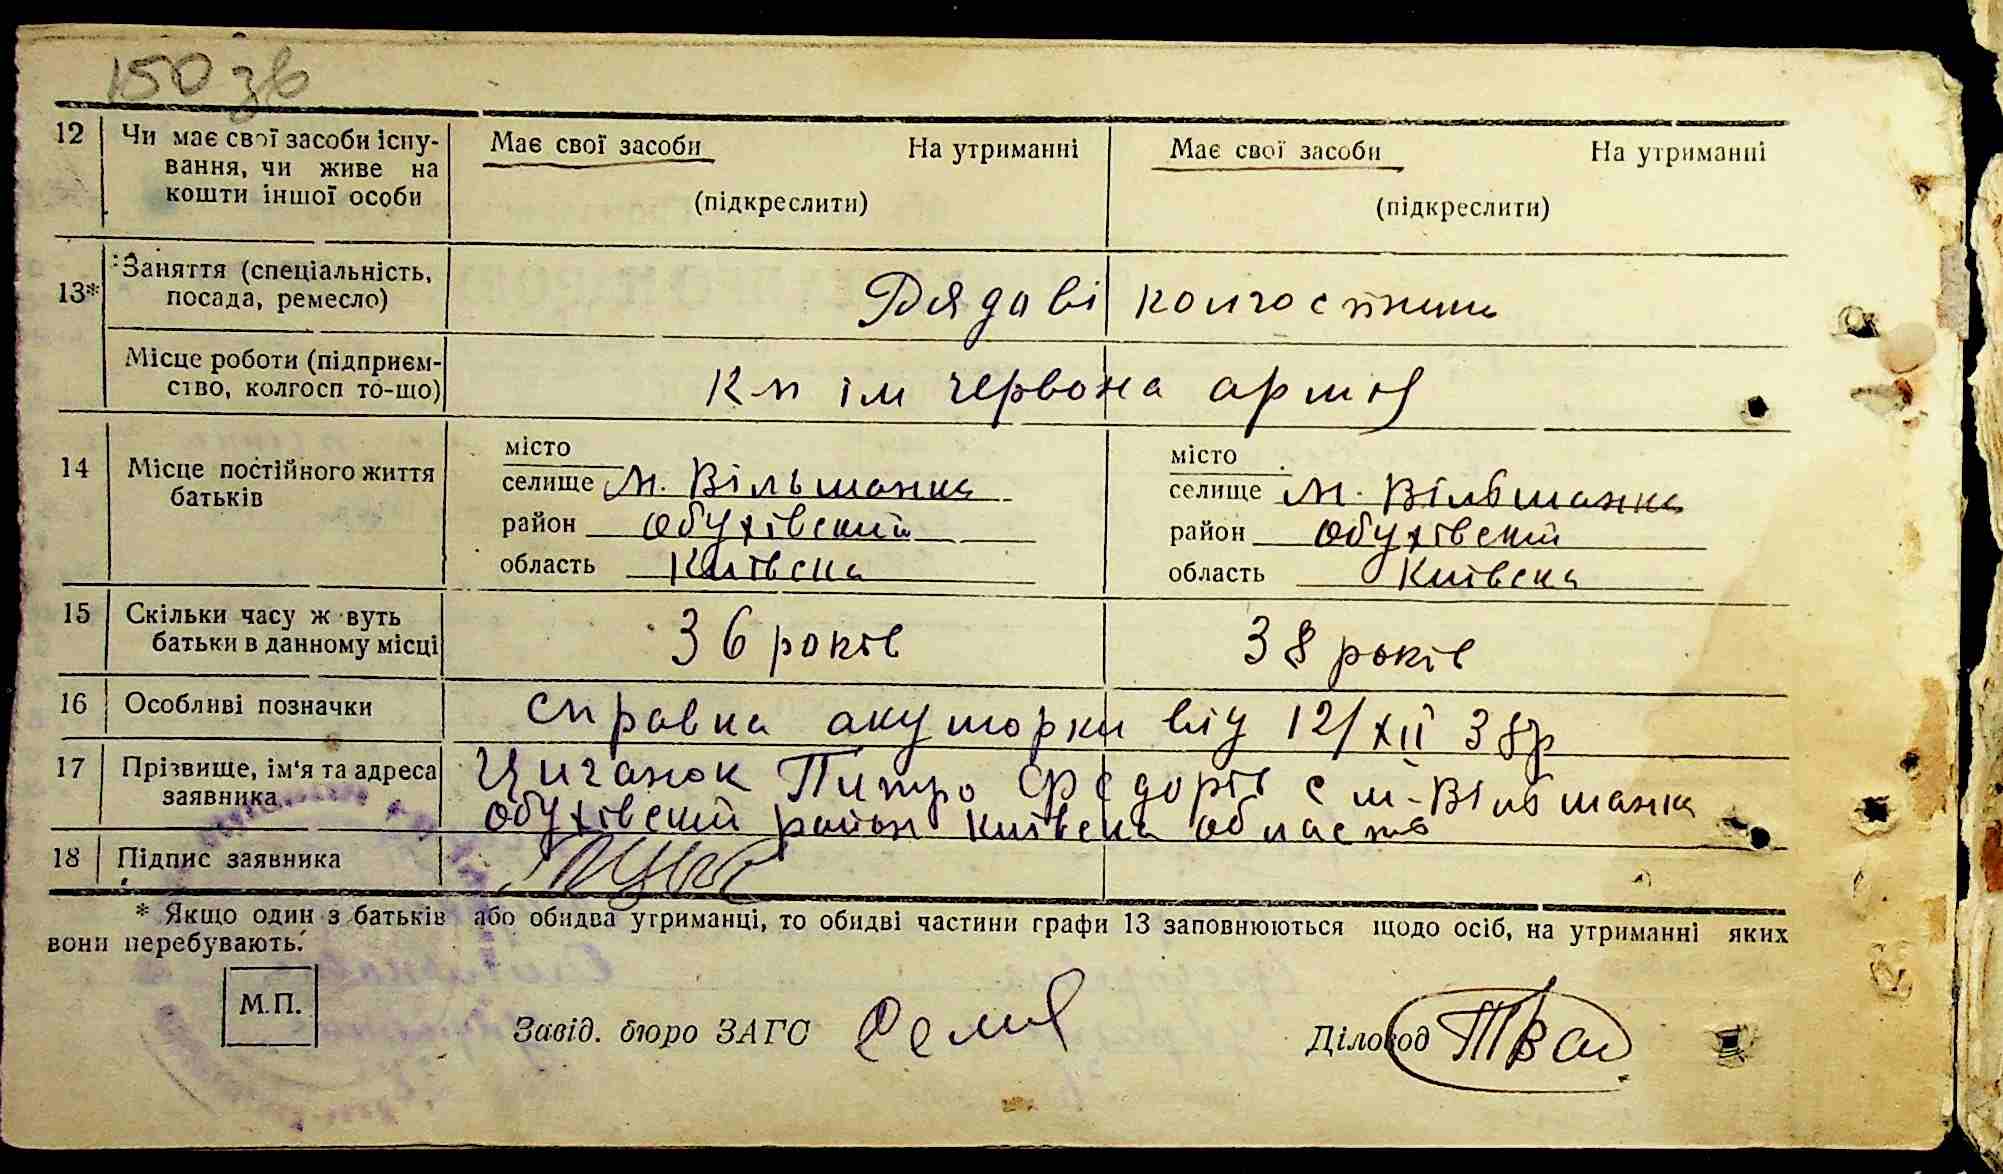 150 зв
12 Чи має свої засоби існу-
вання, чи живе на
кошти іншої особи
Має свої засоби На утриманні
(підкреслити)
Має свої засоби На утриманні
(підкреслити)
13* Заняття (спеціальність,
посада, ремесло)
Рядові колгоспники
Місце роботи (підприєм-
ство, колгосп то-що)
Кп ім червона армія
14 Місце постійного життя
батьків
місто
селище м. Вільшанка
район Обухівский
область Київска
місто
селище м. Вільшанка
район Обухівский
область Київска
15 Скільки часу ж вуть
батьки в данному місці
36 років
38 років
16 Особливі позначки
справка акушорки від 12/XII 38р
17 Прізвище, ім'я та адреса
заявника
Циганок Питро Федорів с м-Вільшанка
Обухівский район Київска область
18 Підпис заявника
* Якщо один з батьків або обидва утриманці, то обидві частини графи 13 заповнюються щодо осіб, на утриманні яких
вони перебувають.
М.П.
Завід. бюро ЗАГС
Діловод